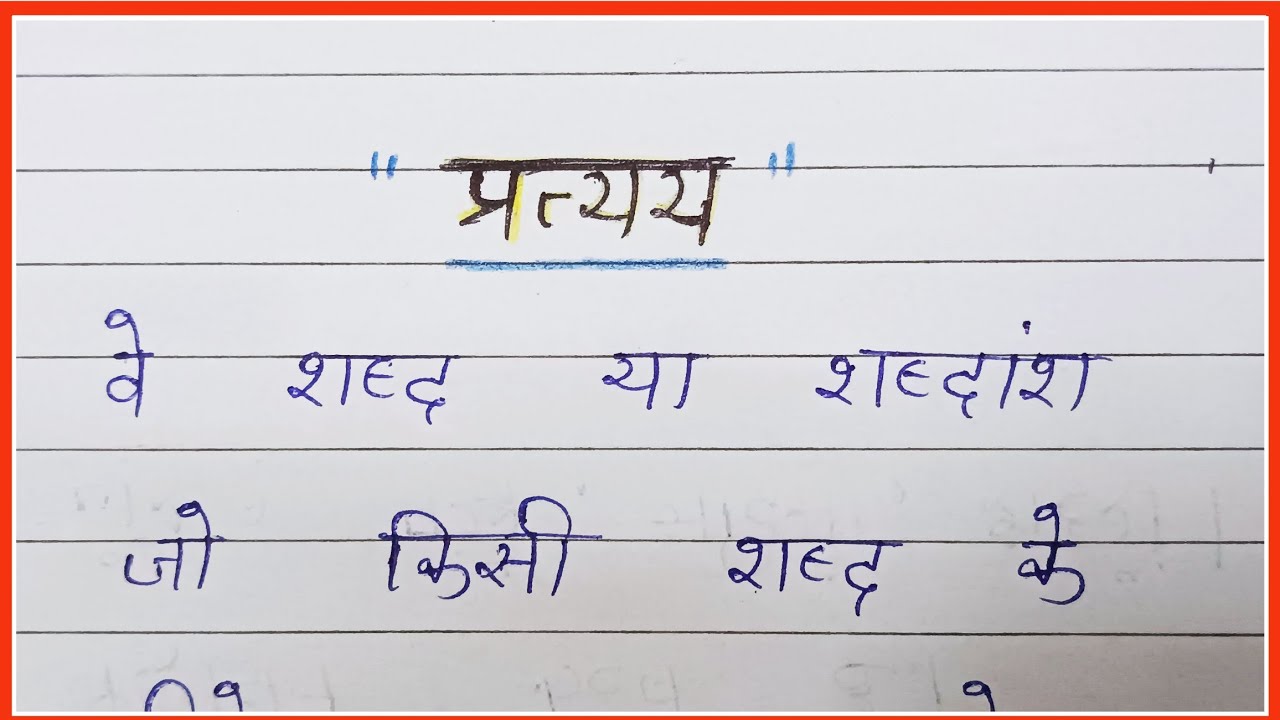 "प्रत्यय"
वे शब्द या शब्दांश
जो किसी शब्द के